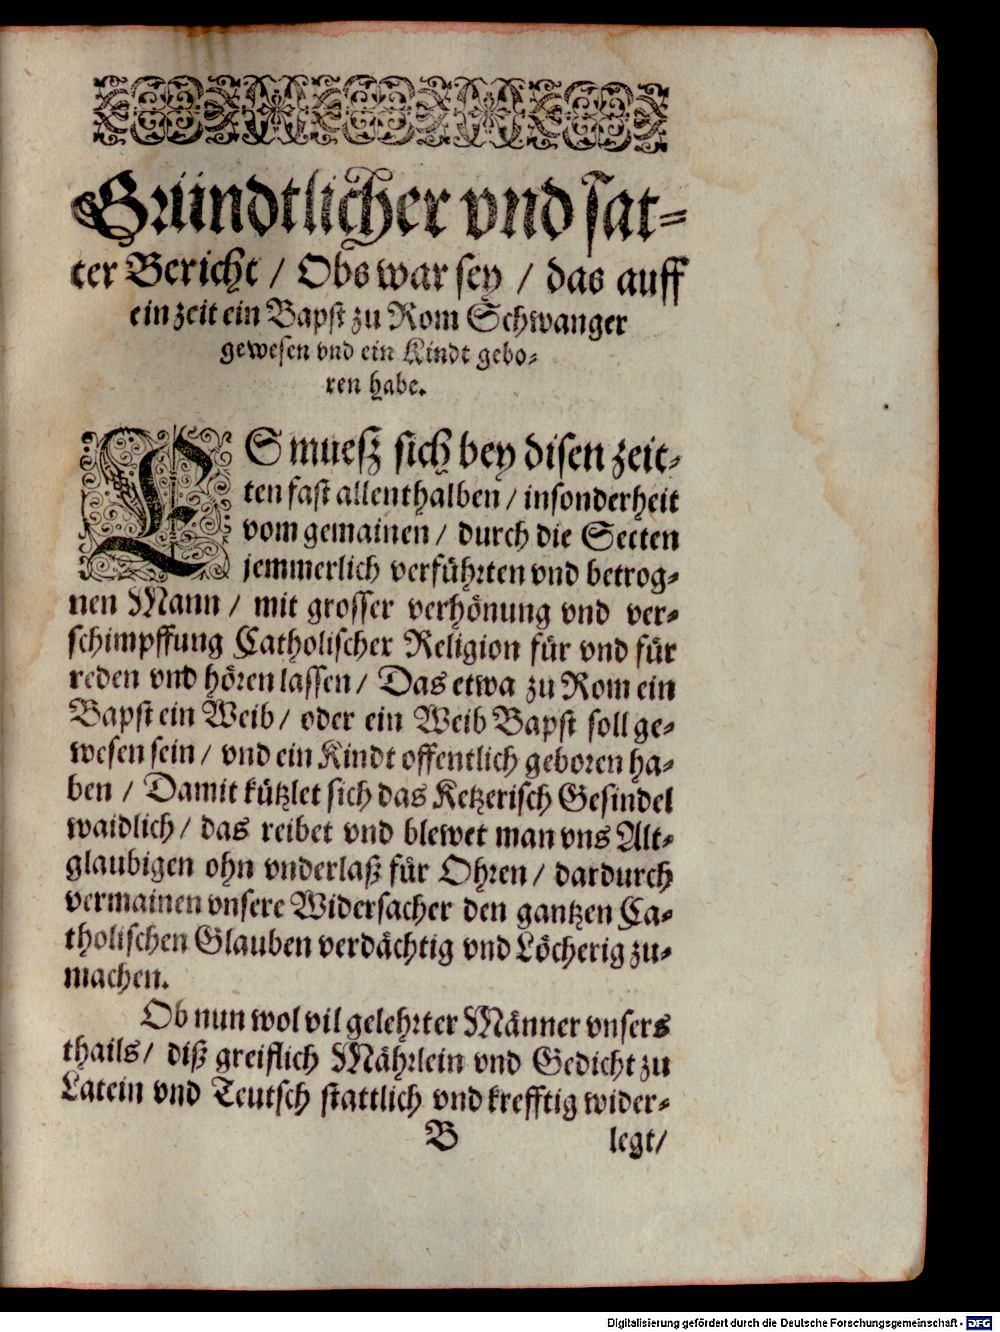 Gründtlicher vnd sat=
ter Bericht / Obs war sey / das auff
ein zeit ein Bapst zu Rom Schwanger
gewesen vnd ein Kindt gebo=
ren habe.
ES muesz sich bey disen zeit=
ten fast allenthalben / insonderheit
vom gemainen / durch die Secten
jemmerlich verführten vnd betrog=
nen Mann / mit grosser verhönung vnd ver=
schimpffung Catholischer Religion für vnd für
reden vnd hören lassen / Das etwa zu Rom ein
Bapst ein Weib / oder ein Weib Bapst soll ge=
wesen sein / vnd ein Kindt offentlich geboren ha=
ben / Damit kützlet sich das Ketzerisch Gesindel
waidlich / das reibet vnd blewet man vns Alt=
glaubigen ohn vnderlaß für Ohren / dardurch
vermainen vnsere Widersacher den gantzen Ca=
tholischen Glauben verdächtig vnd Löcherig zu=
machen.
Ob nun wol vil gelehrter Männer vnsers
thails / diß greiflich Mährlein vnd Gedicht zu
Latein vnd Teutsch stattlich vnd krefftig wider=
B legt /
Digitalisierung gefördert durch die Deutsche Forschungsgemeinschaft - DFG